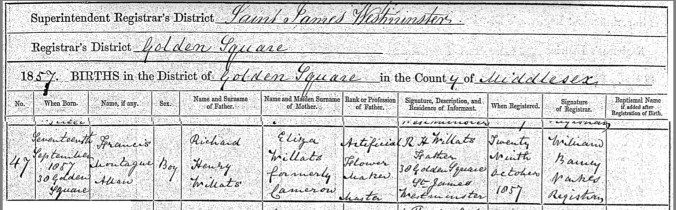 Superintendent Registrar's District Saint James Westminster
Registrar's District Golden Square
1857. BIRTHS in the District of Golden Square in the County of Middlesex
No. When Born. Name, if any. Sex. Name and Surname of Father. Name and Maiden Surname of Mother. Rank or Profession of Father. Signature, Description, and Residence of Informant. When Registered. Signature of Registrar. Baptismal Name if added after Registration of Birth.
Westminster
Seventeenth Francis Richard Eliza Artificial R H Willats Twenty William
September Montague Henry Willats Flower Father Ninth
47 1857 Allan Boy Willats formerly Maker 30 Golden Square October
30 Golden Cameron Master St James 1857 Registrar
Square Westminster